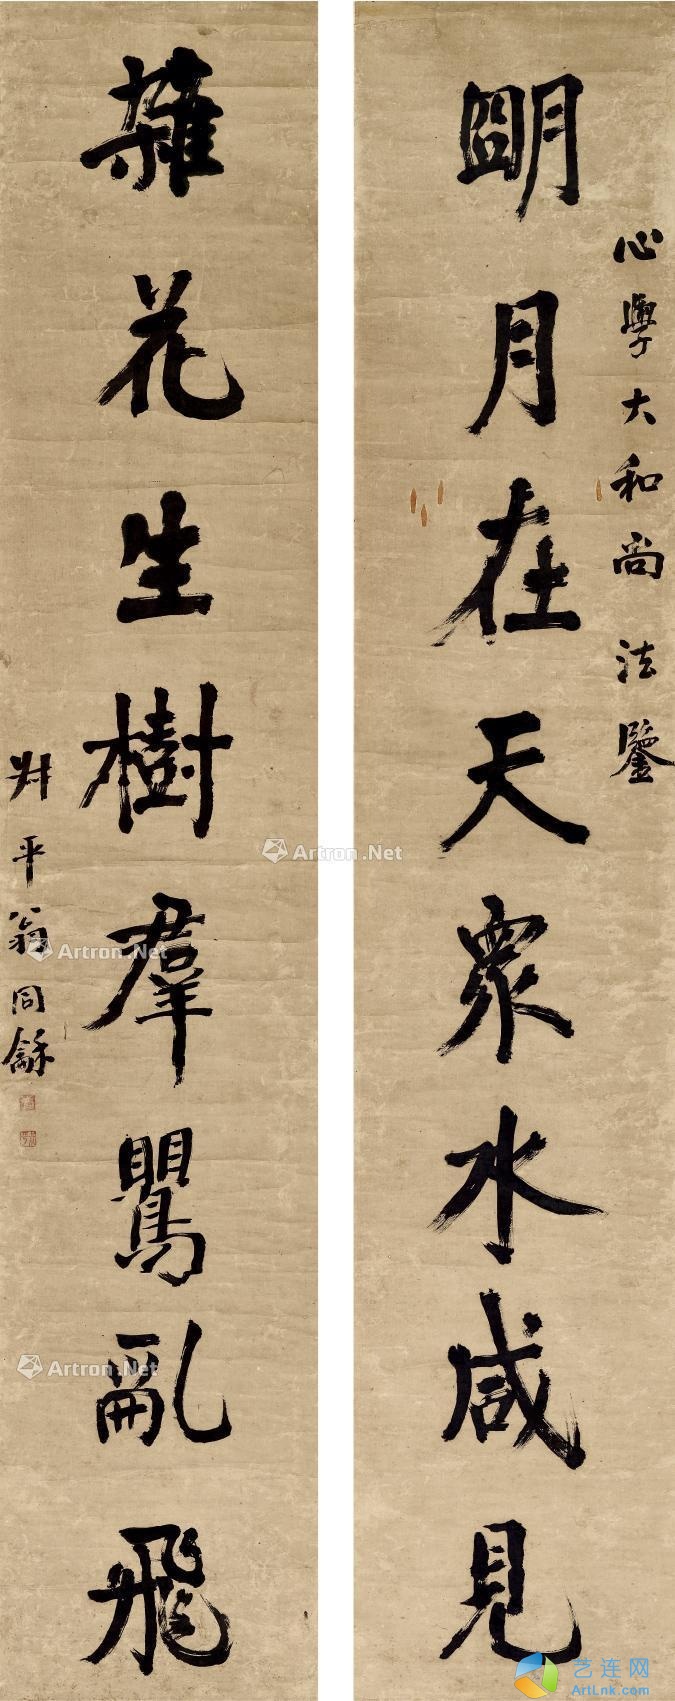 心學大和尚法鑒
朙月在天眾水咸見
雜花生樹羣鸎亂飛
尗平翁同龢
Artron.Net
Artron.Net
Artron.Net
艺连网
ArtLnk.com